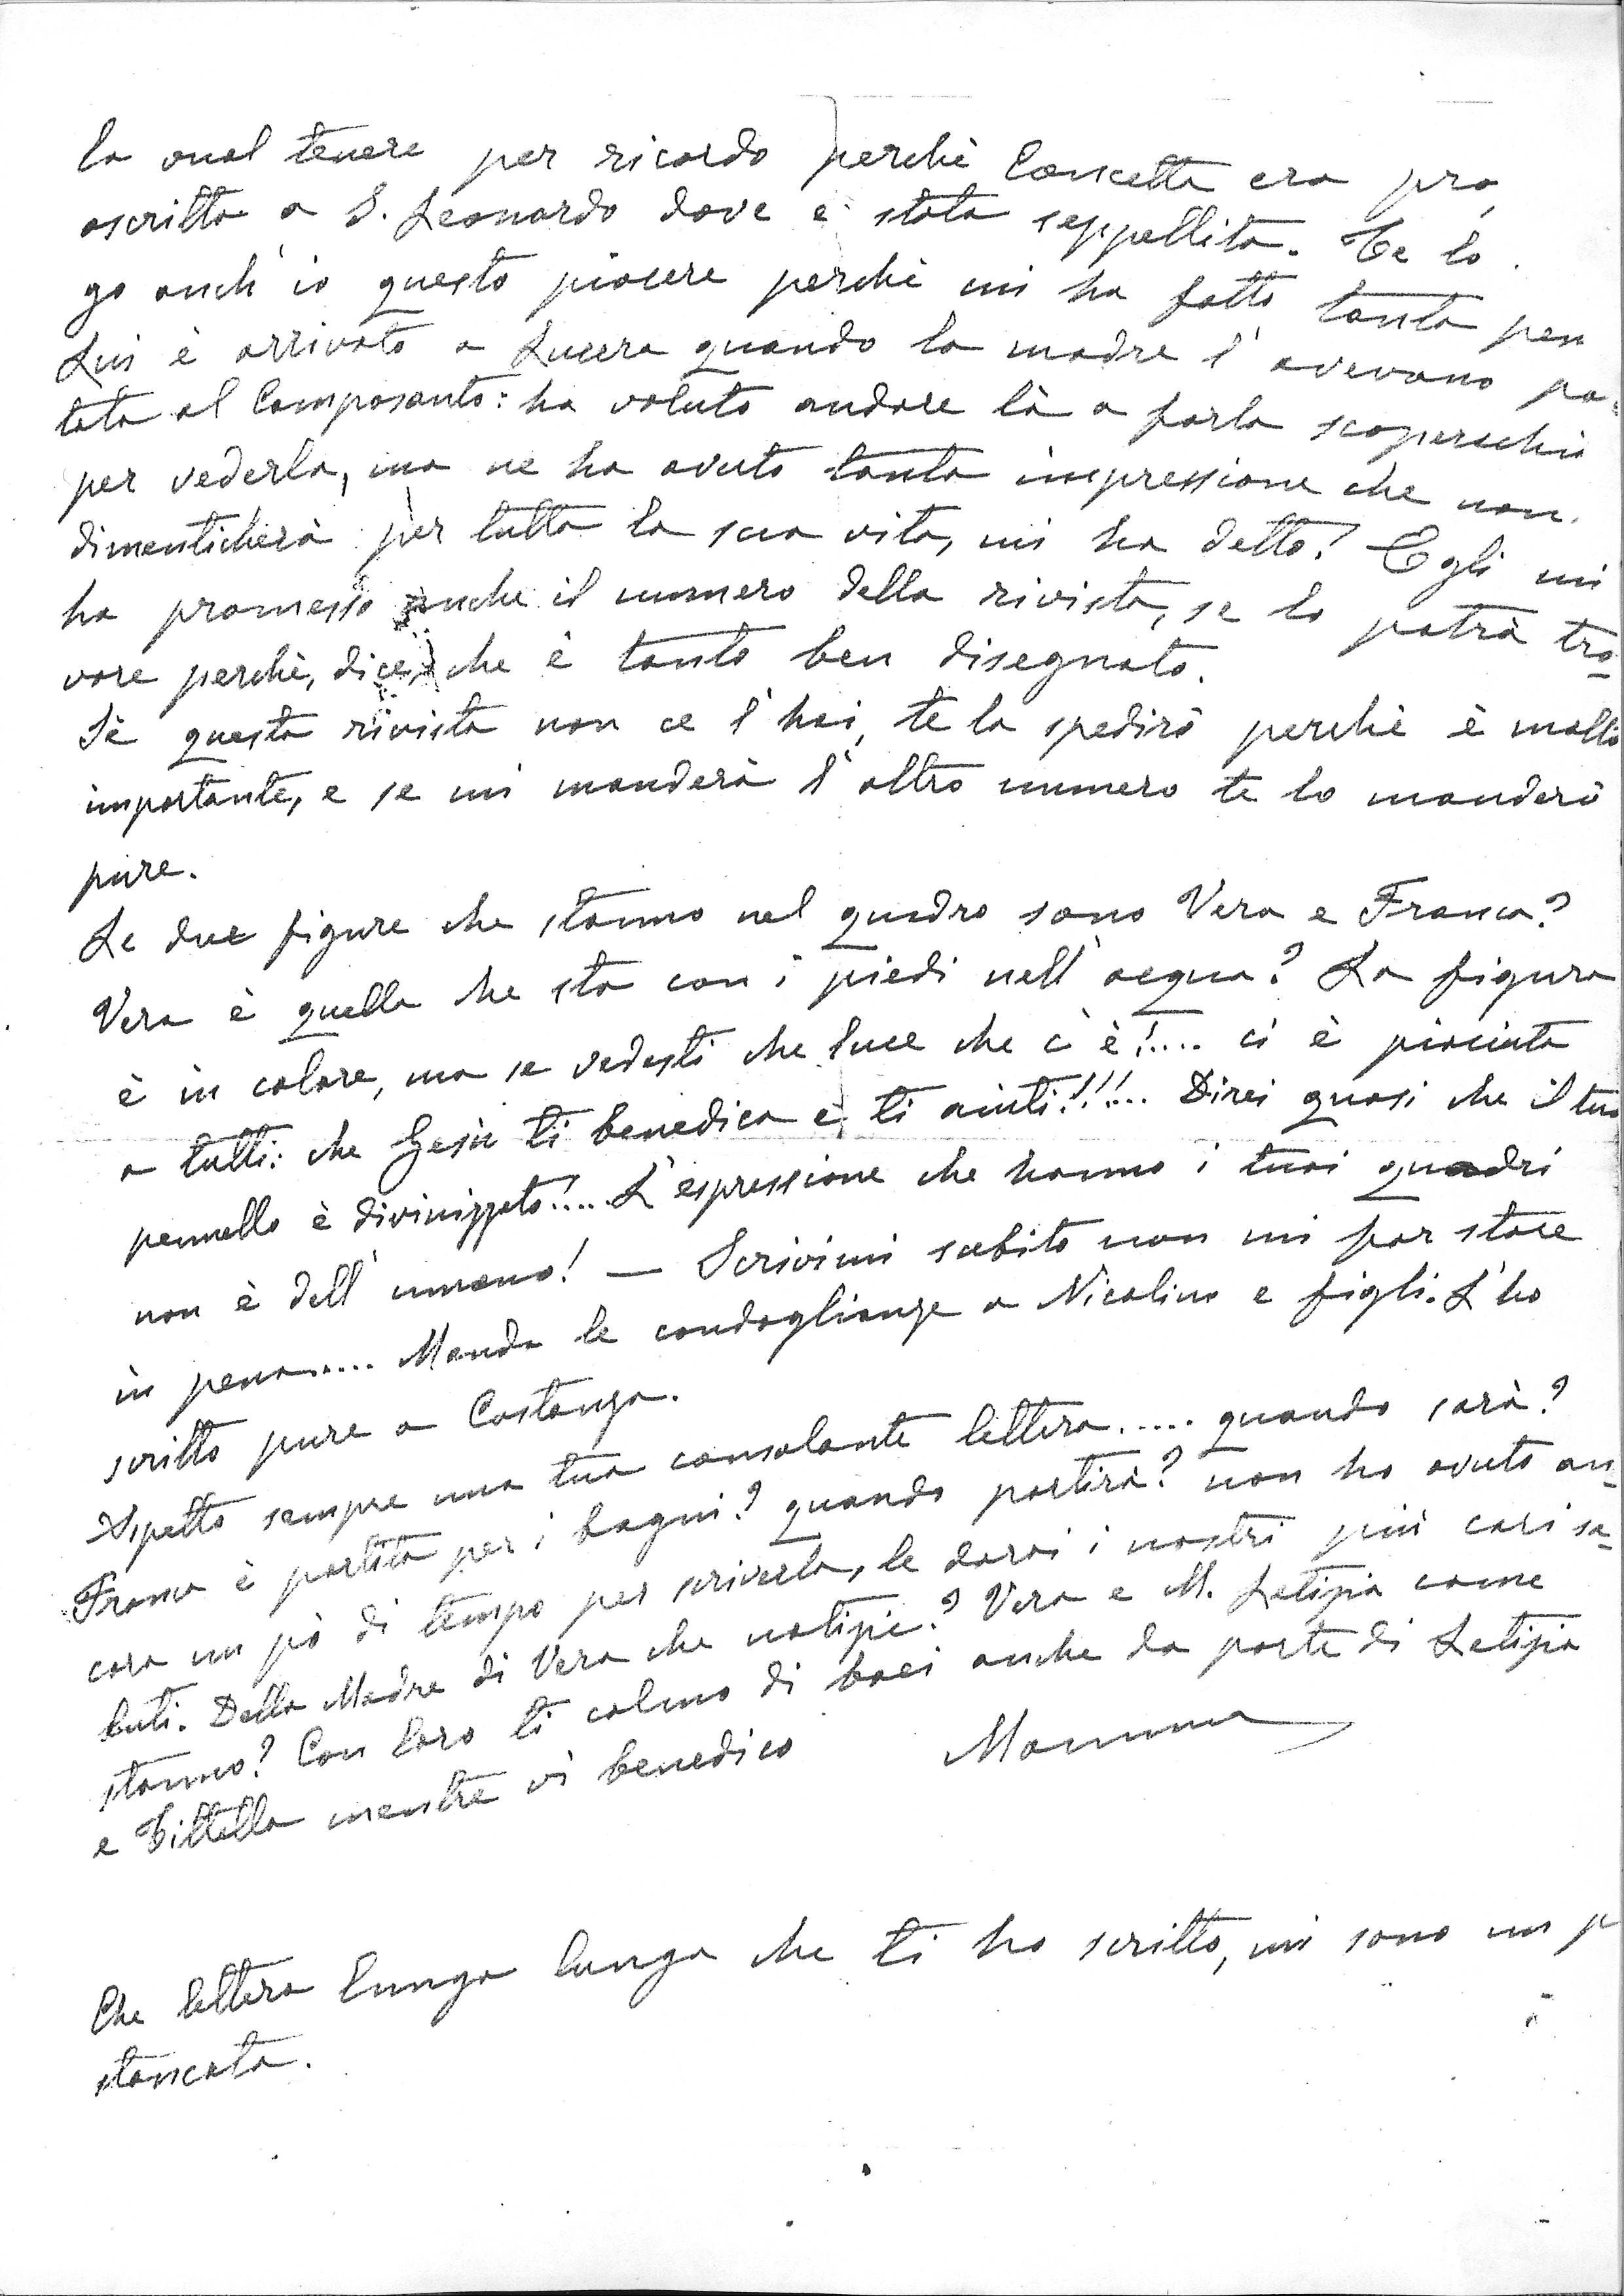 la vuol tenere per ricordo perchè Concetta era pro,
ascritta a S. Leonardo dove è stata seppellita. Te lo
go anch'io questo piacere perchè mi ha fatto tanta pen
Lui è arrivato a Lucera quando la madre l'avevano po.
tata al Camposanto: ha voluto andare là a farla scoperchia
per vederla, ma ne ha avuto tanta impressione che non.
dimenticherà per tutta la sua vita, mi ha detto! Egli mi
ha promesso anche il numero della rivista, se lo potrà tro-
vare perchè, dice, che è tanto ben disegnato.
Sè questa rivista non ce l'hai, te la spedirò perchè è molto
importante, e se mi manderà l'altro numero te lo manderò
pure.
Le due figure che stanno nel quadro sono Vera e Franca?
Vera è quella che sta con i piedi nell'acqua? La figura
è in colore, ma se vedesti che luce che c'è!.... ci è piaciuta
a tutti: che Gesù ti benedica e ti aiuti!!!... Direi quasi che il tuo
pennello è divinizzato!.... L'espressione che hanno i tuoi quadri
non è dell'umano! — Scrivimi subito non mi far stare
in pena..... Manda le condoglianze a Nicolino e figli. L'ho
scritto pure a Costanza.
Aspetto sempre una tua consolante lettera..... quando sarà?
Franca è partita per i bagni? quando partirà? non ho avuto an-
cora un pò di tempo per scriverla, le darai i nostri più cari sa-
luti. Della Madre di Vera che notizie? Vera e M. Letizia come
stanno? Con loro ti colmo di baci anche da parte di Letizia
e Tittella mentre vi benedico Mamma
Che lettera lunga lunga che ti ho scritto, mi sono un p
stancata.